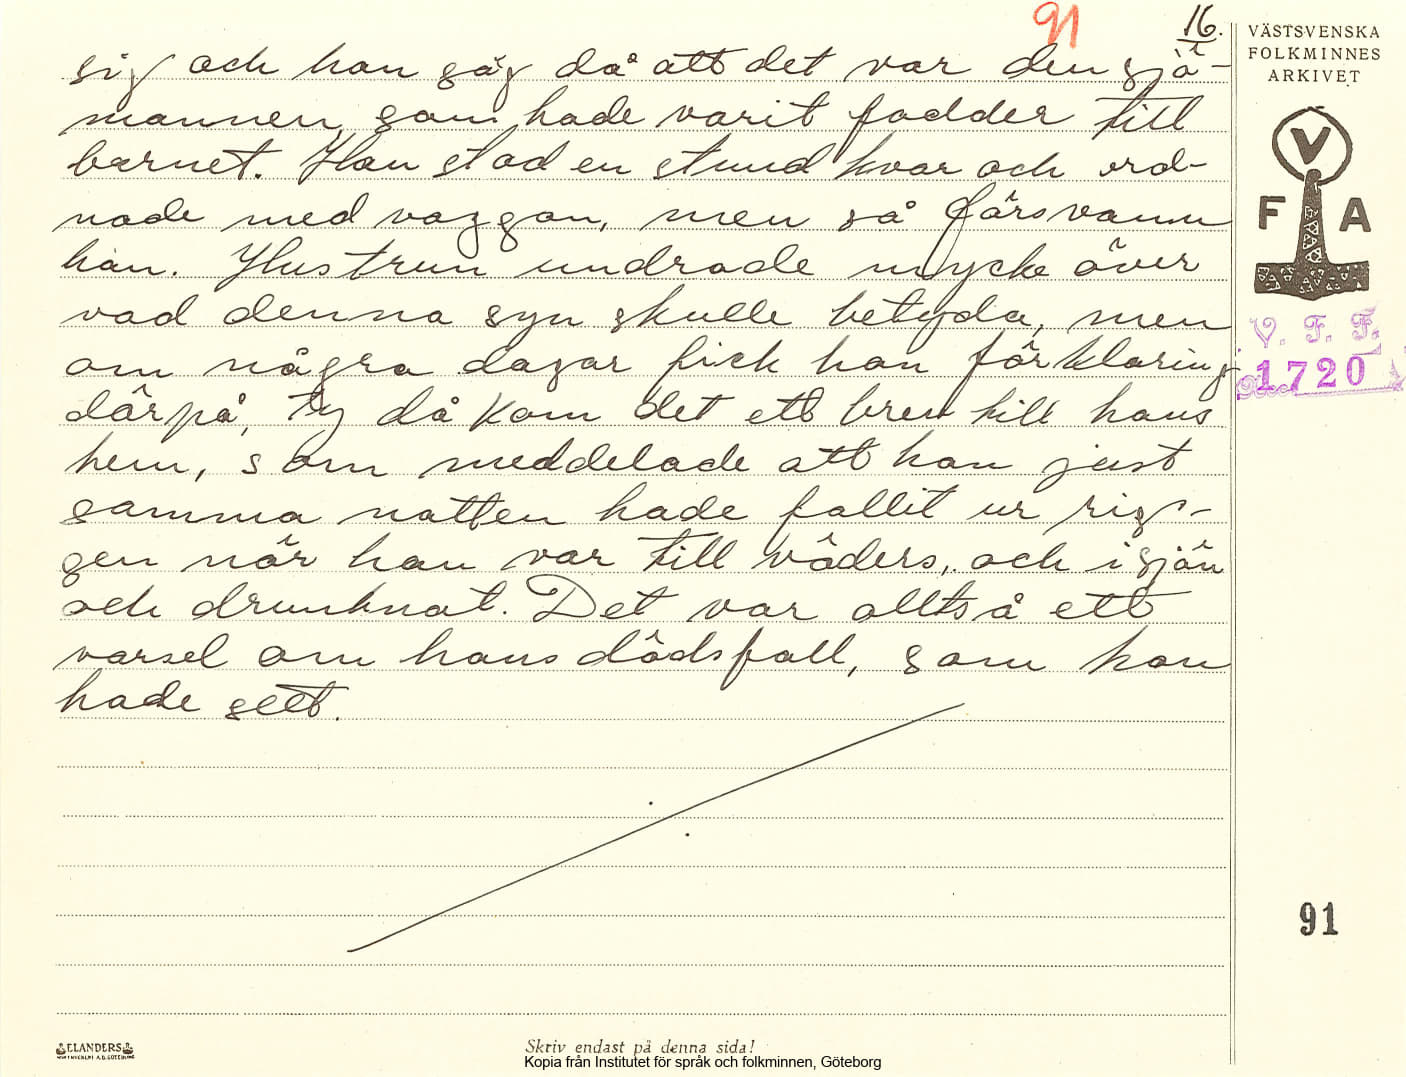 91
16.
VÄSTSVENSKA
FOLKMINNES
ARKIVET
sig och hon såg då att det var den sjö-
mannen, som hade varit fadder till
barnet. Han stod en stund kvar och ord-
nade med vaggan, men så försvann
han. Hustrun undrade mycke över
vad denna syn skulle betyda, men
om några dagar fick hon förklaring
därpå, ty då kom det ett brev till hans
hem, som meddelade att han just
samma natten hade fallit ur rig-
gen när han var till väders, och i sjön
och drunknat. Det var alltså ett
varsel om hans dödsfall, som hon
hade sett.
V
F A
V. F. F.
1720
91
ELANDERS
Skriv endast på denna sida!
Kopia från Institutet för språk och folkminnen, Göteborg